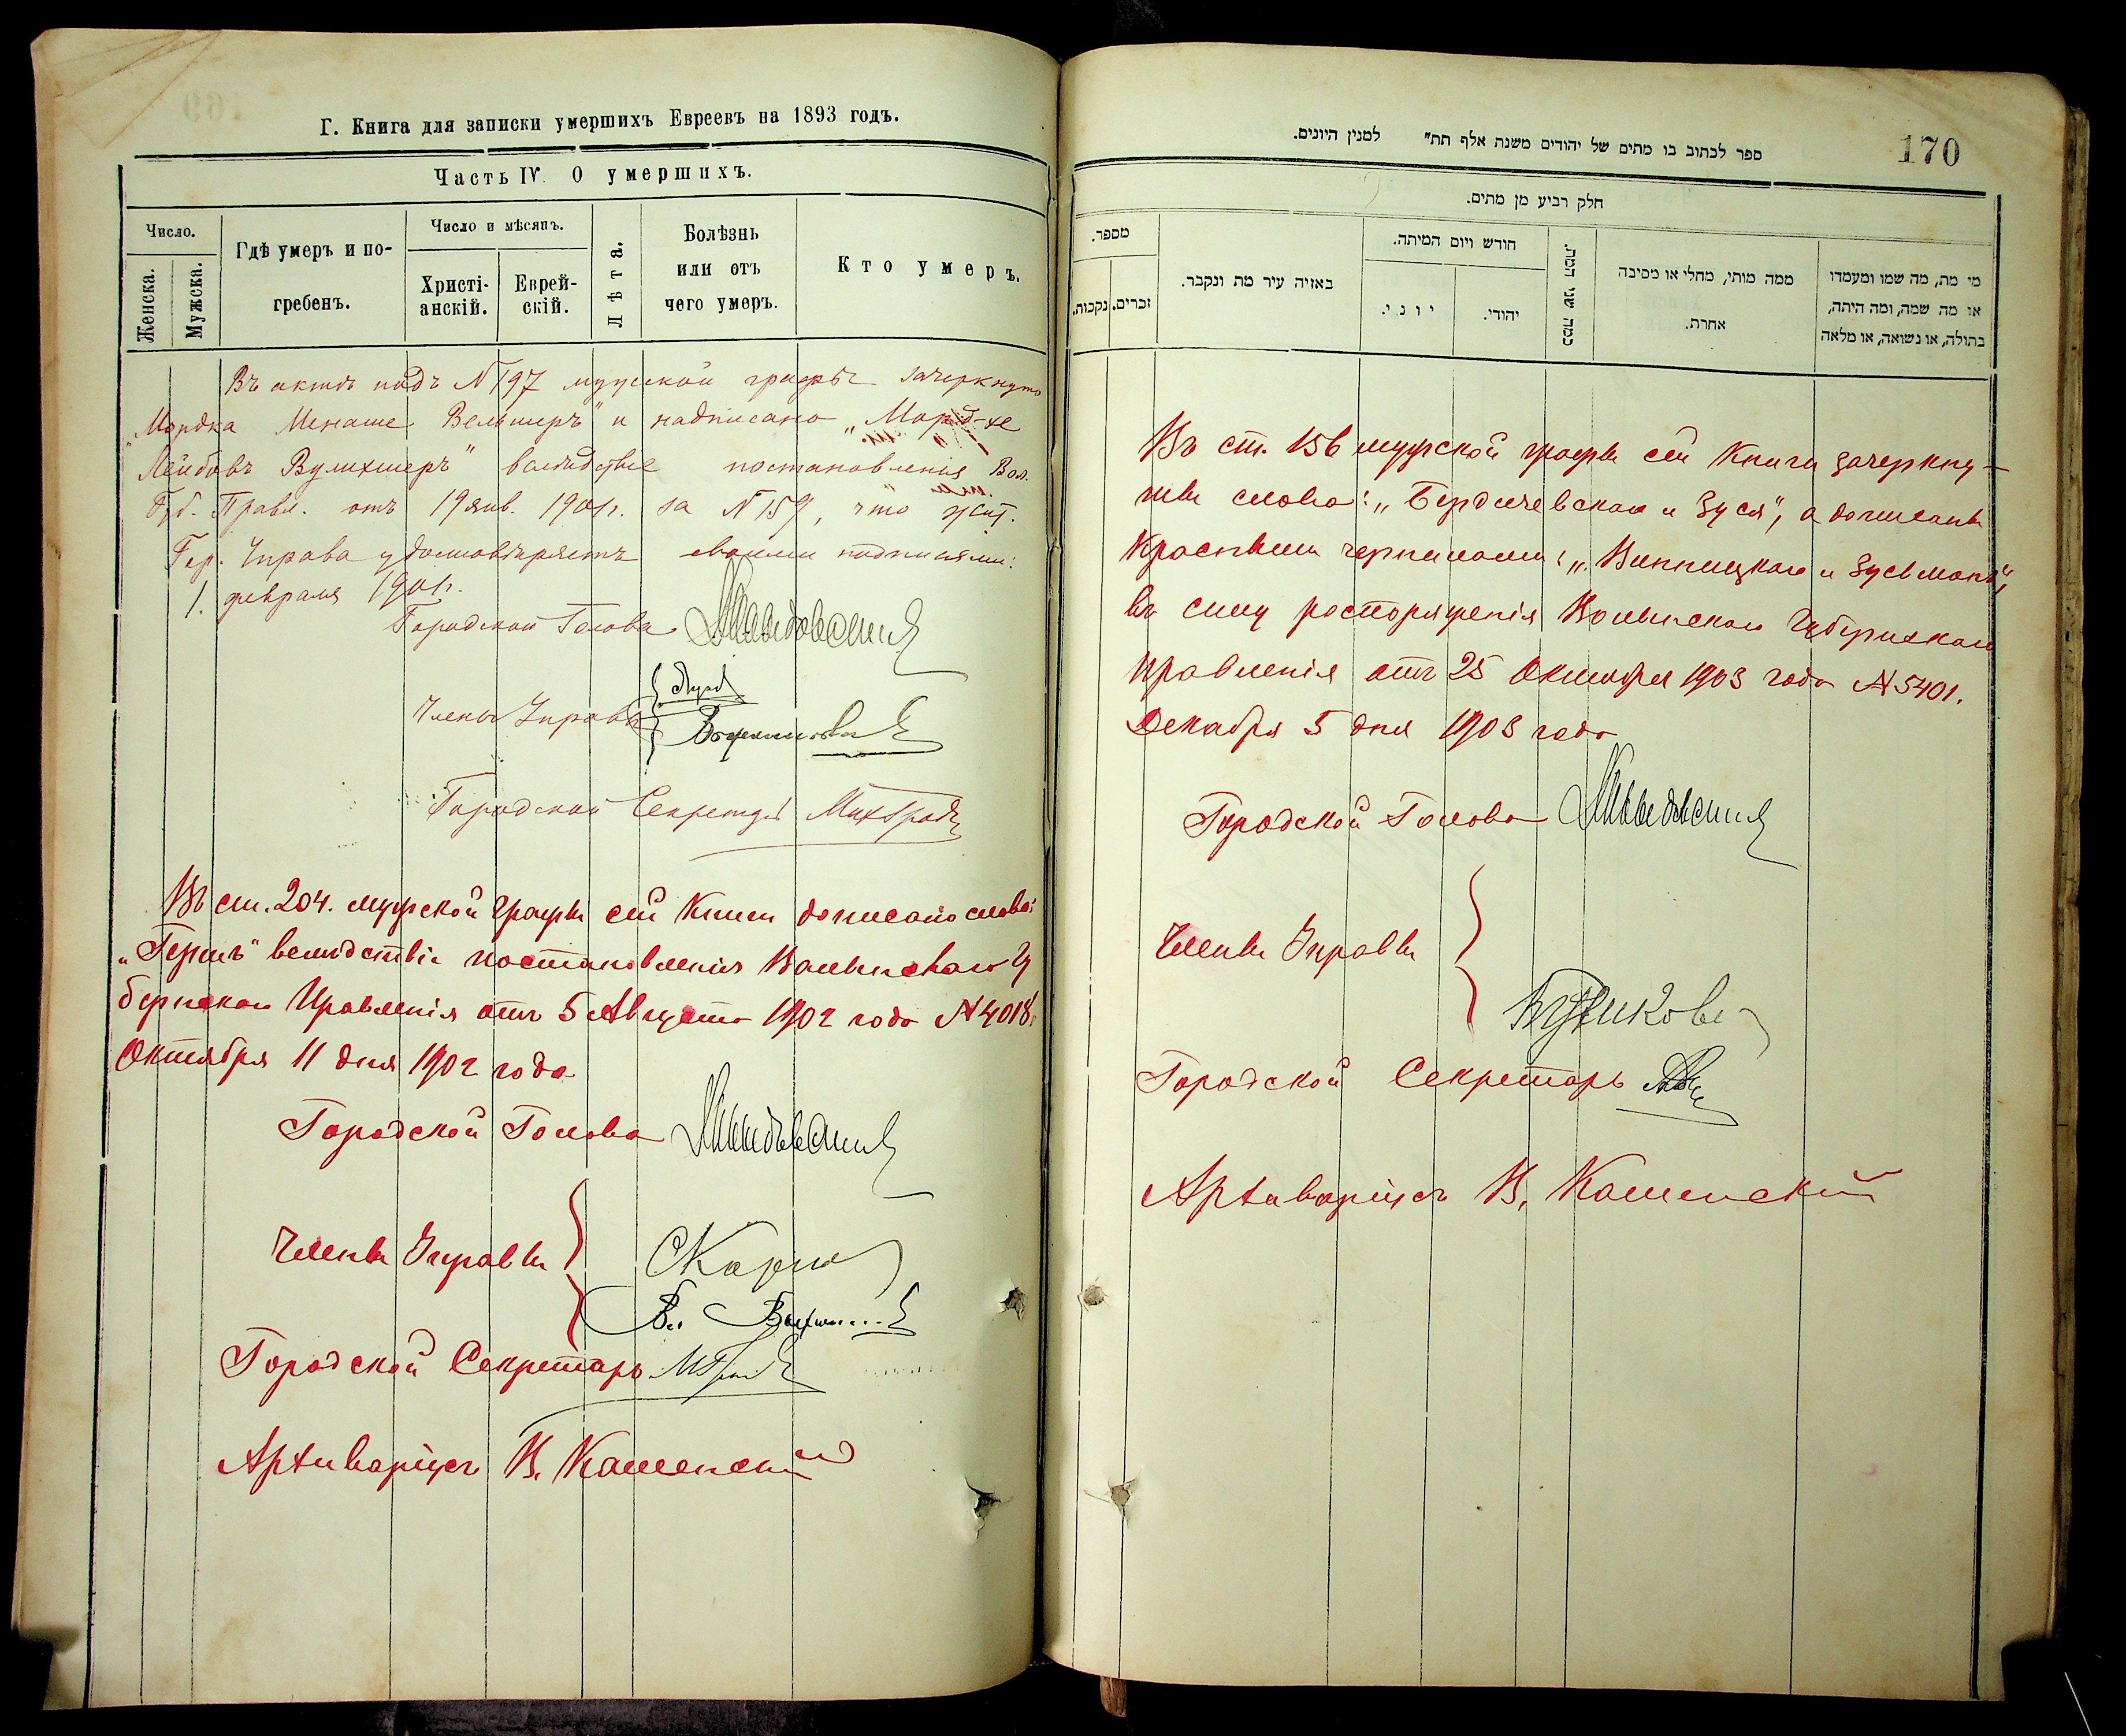 Г. Книга для записки умершихъ Евреевъ на 1893 годъ.
Часть IV. О умершихъ.
Число.
Женска.
Мужска.
Гдѣ умеръ и по-
гребенъ.
Число и мѣсяцъ.
Христі-
анскій.
Еврей-
скій.
Лѣта.
Болѣзнь
или отъ
чего умеръ.
Кто умеръ.
Въ актѣ подъ N 197 мужской графы зачеркнуто
„Мордка Менаше Вельшеръ" и надписано „Мордхе
Лейбовъ Вулихшеръ" вслѣдствіе постановленія Вол.
Губ. Правл. отъ 19 янв. 1901 г. за N 159, что Жит.
Гор. Управа удостовѣряетъ своими подписями:
1. февраля 1901 г.
Городской Голова
Члены Управы
Городской Секретарь
Въ ст. 204. мужской графы сей книги дописано слово:
„Гершъ" вслѣдствіе постановленія Волынскаго Гу
бернскаго Правленія отъ 5 Августа 1902 года N 4018.
Октября 11 дня 1902 года
Городской Голова
Члены Управы
Городской Секретарь
Архиваріусъ В. Каменскій
170
ספר לכתוב בו מתים של יהודים משנת אלף תת" למנין היונים.
חלק רביע מן מתים.
מספר.
נקבות.
זכרים.
באזיה עיר מת ונקבר.
חודש ויום המיתה.
יוני.
יהודי.
כמה שני המת.
ממה מותי, מחלי או מסיבה
אחרת.
מי מת, מה שמו ומעמדו
או מה שמה, ומה היתה,
בתולה, או נשואה, או מלאה
Въ ст. 156 мужской графы сей Книги зачеркну-
ты слова: „Бердичевскаго и Зуся", а дописаны
красными чернилами: „Винницкаго и Зусьманъ",
въ силу распоряженія Волынскаго Губернскаго
Правленія отъ 25 Октября 1903 года N 5401.
Декабря 5 дня 1903 года
Городской Голова
Члены Управы
Городской Секретарь
Архиваріусъ В. Каменскій